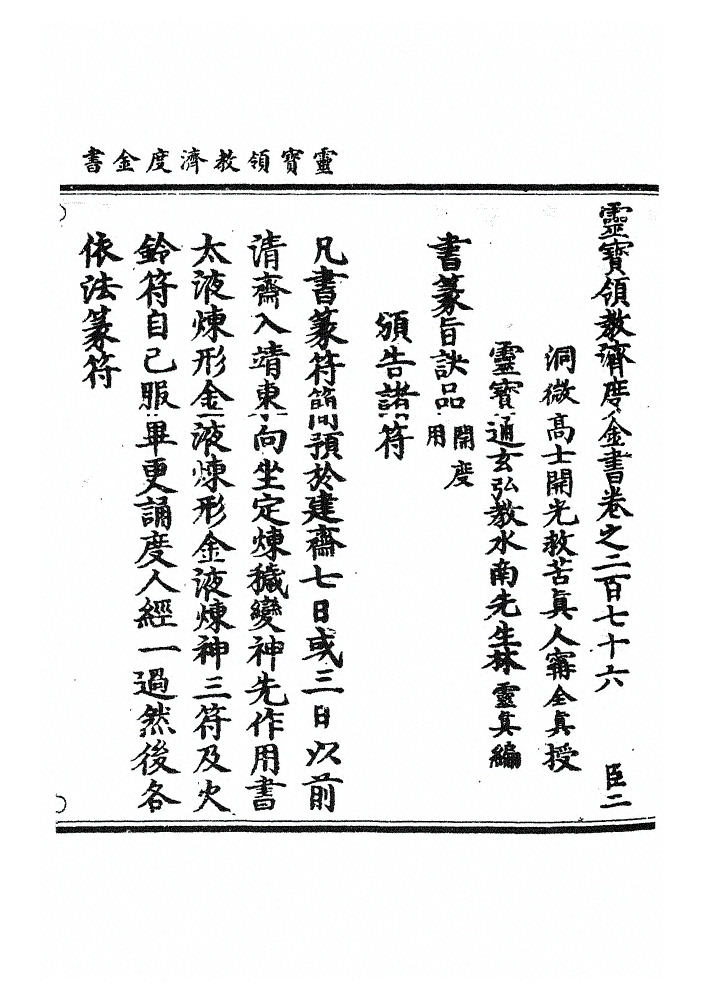 靈寶領教濟度金書
靈寶領教濟度金書卷之二百七十六 臣二
洞微高士開光救苦眞人寗全眞授
靈寶通玄弘教水南先生林靈眞編
書篆旨訣品開度用
頒告諸符
凡書篆符簡預於建齋七日或三日以前
清齋入靖東向坐定煉穢變神先作用書
太液煉形金液煉形金液煉神三符及火
鈴符自己服畢更誦度人經一過然後各
依法篆符